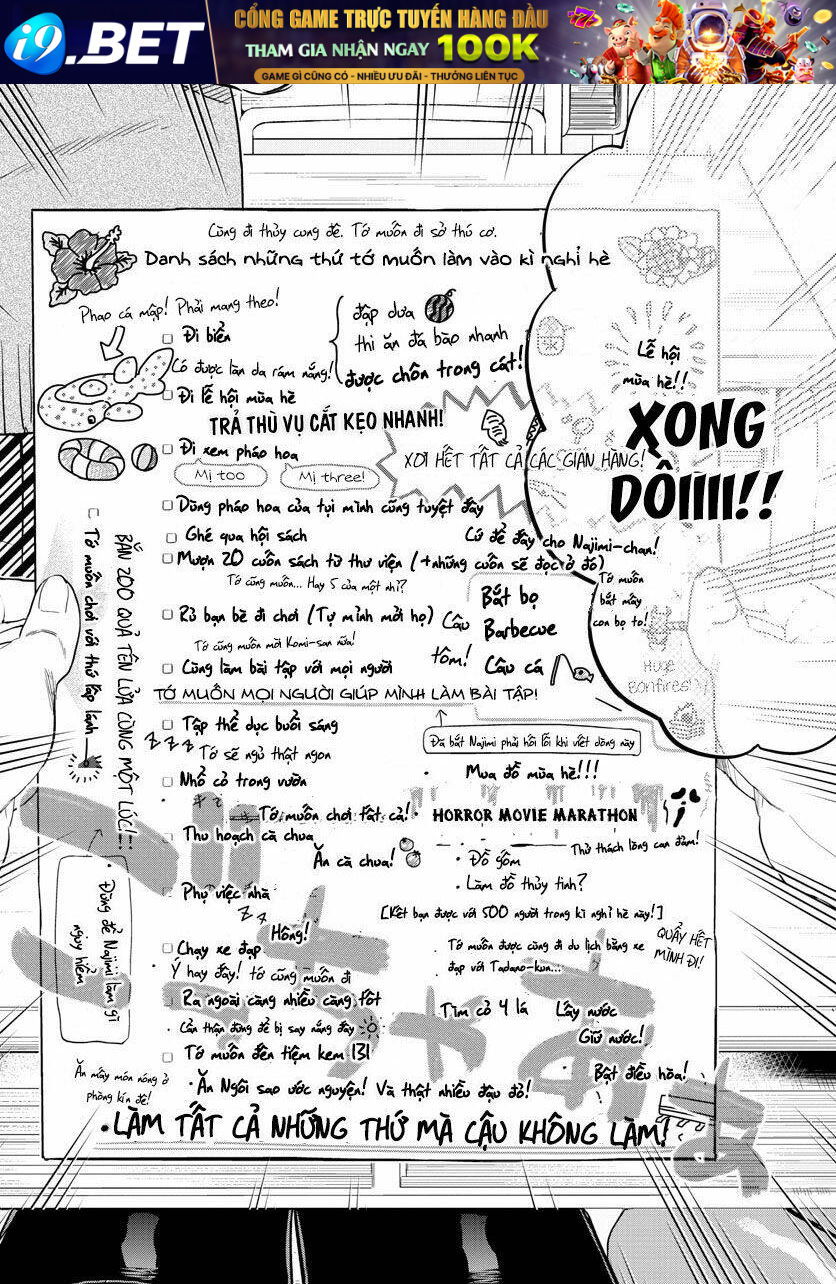 i9.BET
CỔNG GAME TRỰC TUYẾN HÀNG ĐẦU
THAM GIA NHẬN NGAY 100K
GAME GÌ CŨNG CÓ - NHIỀU ƯU ĐÃI - THƯỞNG LIÊN TỤC
Cùng đi thủy cung đê. Tớ muốn đi sở thú cơ.
Danh sách những thứ tớ muốn làm vào kì nghỉ hè
Phao cá mập! Phải mang theo!
Đi biển
đập dưa
thi ăn đá bào nhanh
được chôn trong cát!
Có được làn da rám nắng!
Đi lễ hội mùa hè
TRẢ THÙ VỤ CẮT KẸO NHANH!
Lễ hội
mùa hè!!
XONG
DỒIIIII!!
Đi xem pháo hoa
Mị too
Mị three!
XƠI HẾT TẤT CẢ CÁC GIAN HÀNG!
Dùng pháo hoa của tụi mình cũng tuyệt đấy
Ghé qua hội sách
Cứ để đây cho Najimi-chan!
Mượn 20 cuốn sách từ thư viện (+những cuốn sẽ đọc ở đó)
Tớ cũng muốn... Hay 5 của một nhỉ?
Tớ muốn
bắt mấy
con bọ to!
Rủ bạn bè đi chơi (Tự mình mời họ)
Tớ cũng muốn mời Komi-san nữa!
Câu
tôm!
Bắt bọ
Barbecue
Câu cá
Cùng làm bài tập với mọi người
Huge
Bonfires!
TỚ MUỐN MỌI NGƯỜI GIÚP MÌNH LÀM BÀI TẬP!
Tớ muốn chơi với thứ lấp lánh
BẮN 200 QUẢ TÊN LỬA CÙNG MỘT LÚC!
Tập thể dục buổi sáng
zzz
Tớ sẽ ngủ thật ngon
Đã bắt Najimi phải hối lỗi khi viết dòng này
Nhổ cỏ trong vườn
Mua đồ mùa hè!!!
Tớ muốn chơi tất cả!
HORROR MOVIE MARATHON
Thu hoạch cà chua
Thử thách lòng can đảm!
Ăn cà chua!
Đồ gốm
Làm đồ thủy tinh?
Đừng để Najimi làm gì
nguy hiểm
Phụ việc nhà
zzz
Hông!
[Kết bạn được với 500 người trong kì nghỉ hè này!]
Chạy xe đạp
Ý hay đấy! tớ cũng muốn đi
Tớ muốn được cùng đi du lịch bằng xe
đạp với Tadano-kun...
QUẨY HẾT
MÌNH ĐI!
Ra ngoài càng nhiều càng tốt
Cẩn thận đừng để bị say nắng đấy
Tìm cỏ 4 lá
Lấy nước
Giữ nước!
Tớ muốn đến tiệm kem 131
Bật điều hòa!
Ăn mấy món nóng ở
phòng kín đê!
Ăn Ngôi sao ước nguyện! Và thật nhiều đậu đỏ!
LÀM TẤT CẢ NHỮNG THỨ MÀ CẬU KHÔNG LÀM!